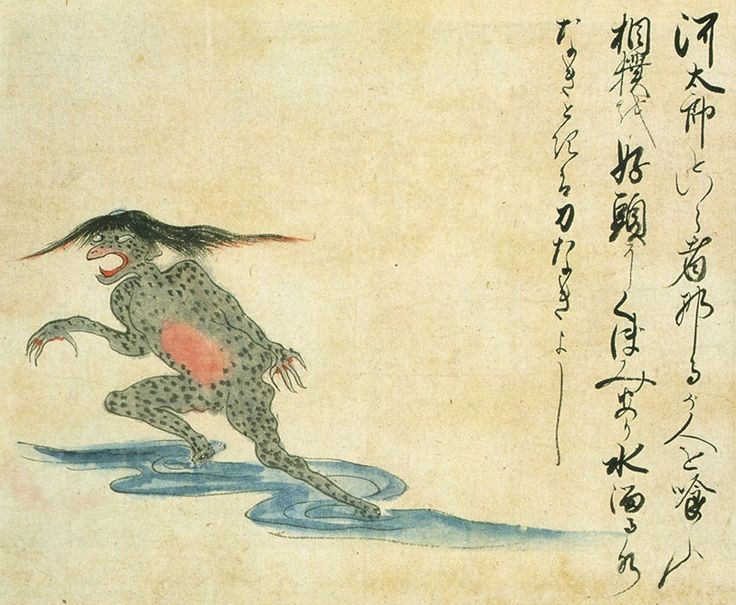 河太郎といふ者なるが人を喰ひ
相撲を好頭にくぼみあり水溜る水
なきときは力なきよし